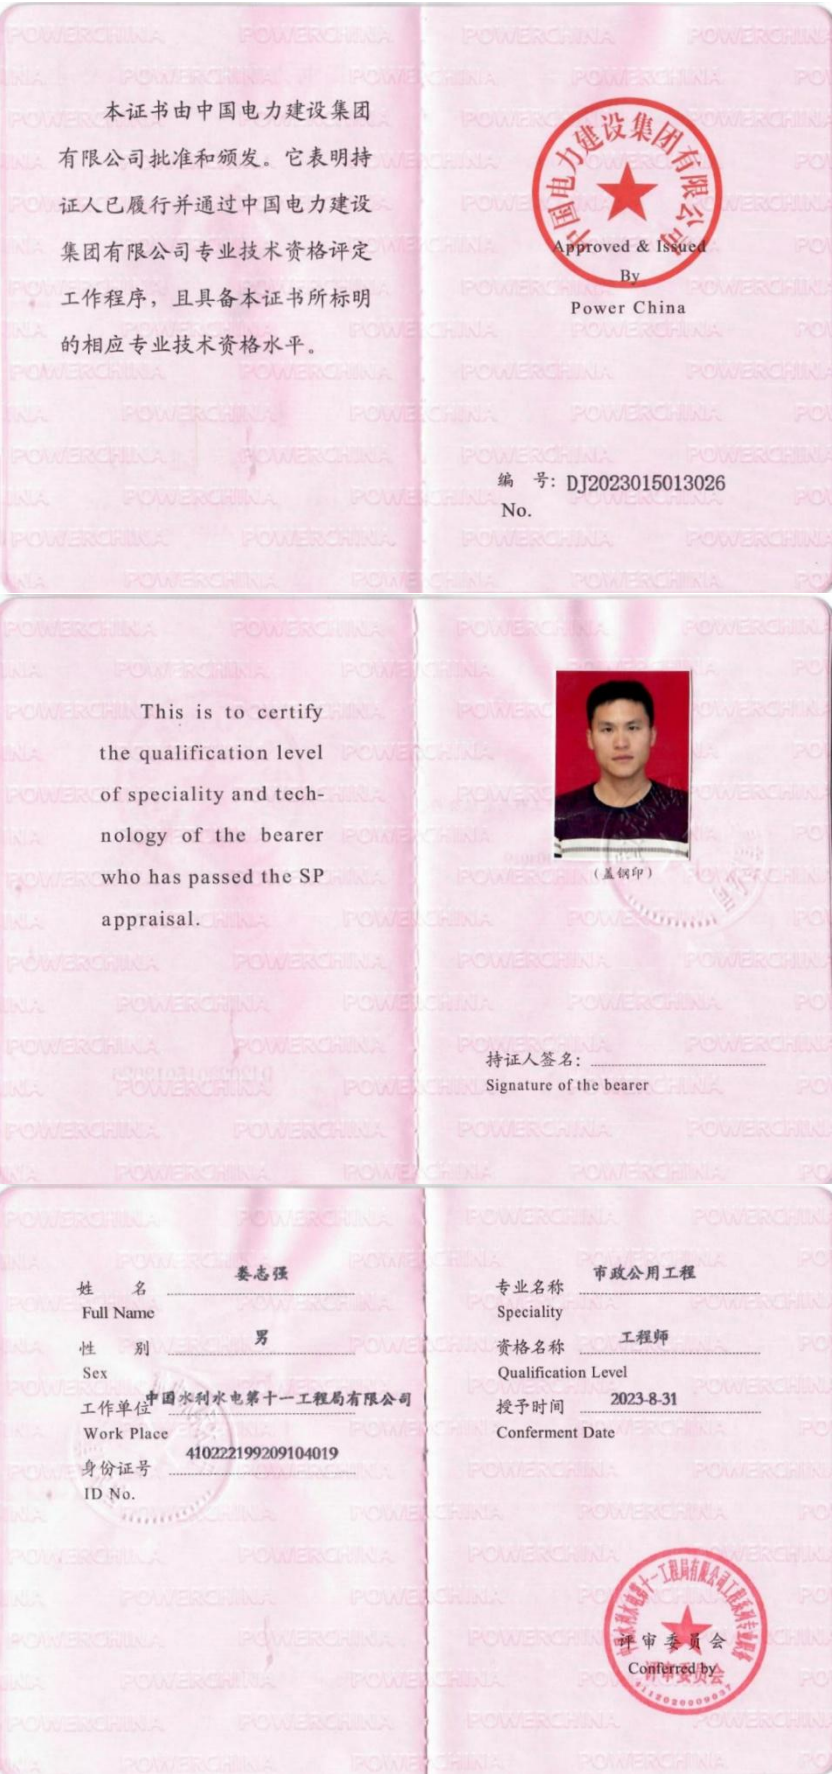 本证书由中国电力建设集团
有限公司批准和颁发。它表明持
证人已履行并通过中国电力建设
集团有限公司专业技术资格评定
工作程序，且具备本证书所标明
的相应专业技术资格水平。
中国电力建设集团有限公司
Approved & Issued
By
Power China
编 号: DJ2023015013026
No.
This is to certify
the qualification level
of speciality and tech-
nology of the bearer
who has passed the SP
appraisal.
(盖钢印)
持证人签名:
Signature of the bearer
姓 名 娄志强
Full Name
性 别 男
Sex
工作单位 中国水利水电第十一工程局有限公司
Work Place
身份证号 410222199209104019
ID No.
专业名称 市政公用工程
Speciality
资格名称 工程师
Qualification Level
授予时间 2023-8-31
Conferment Date
评审委员会
Conferred by
评审委员会
POWERCHINA